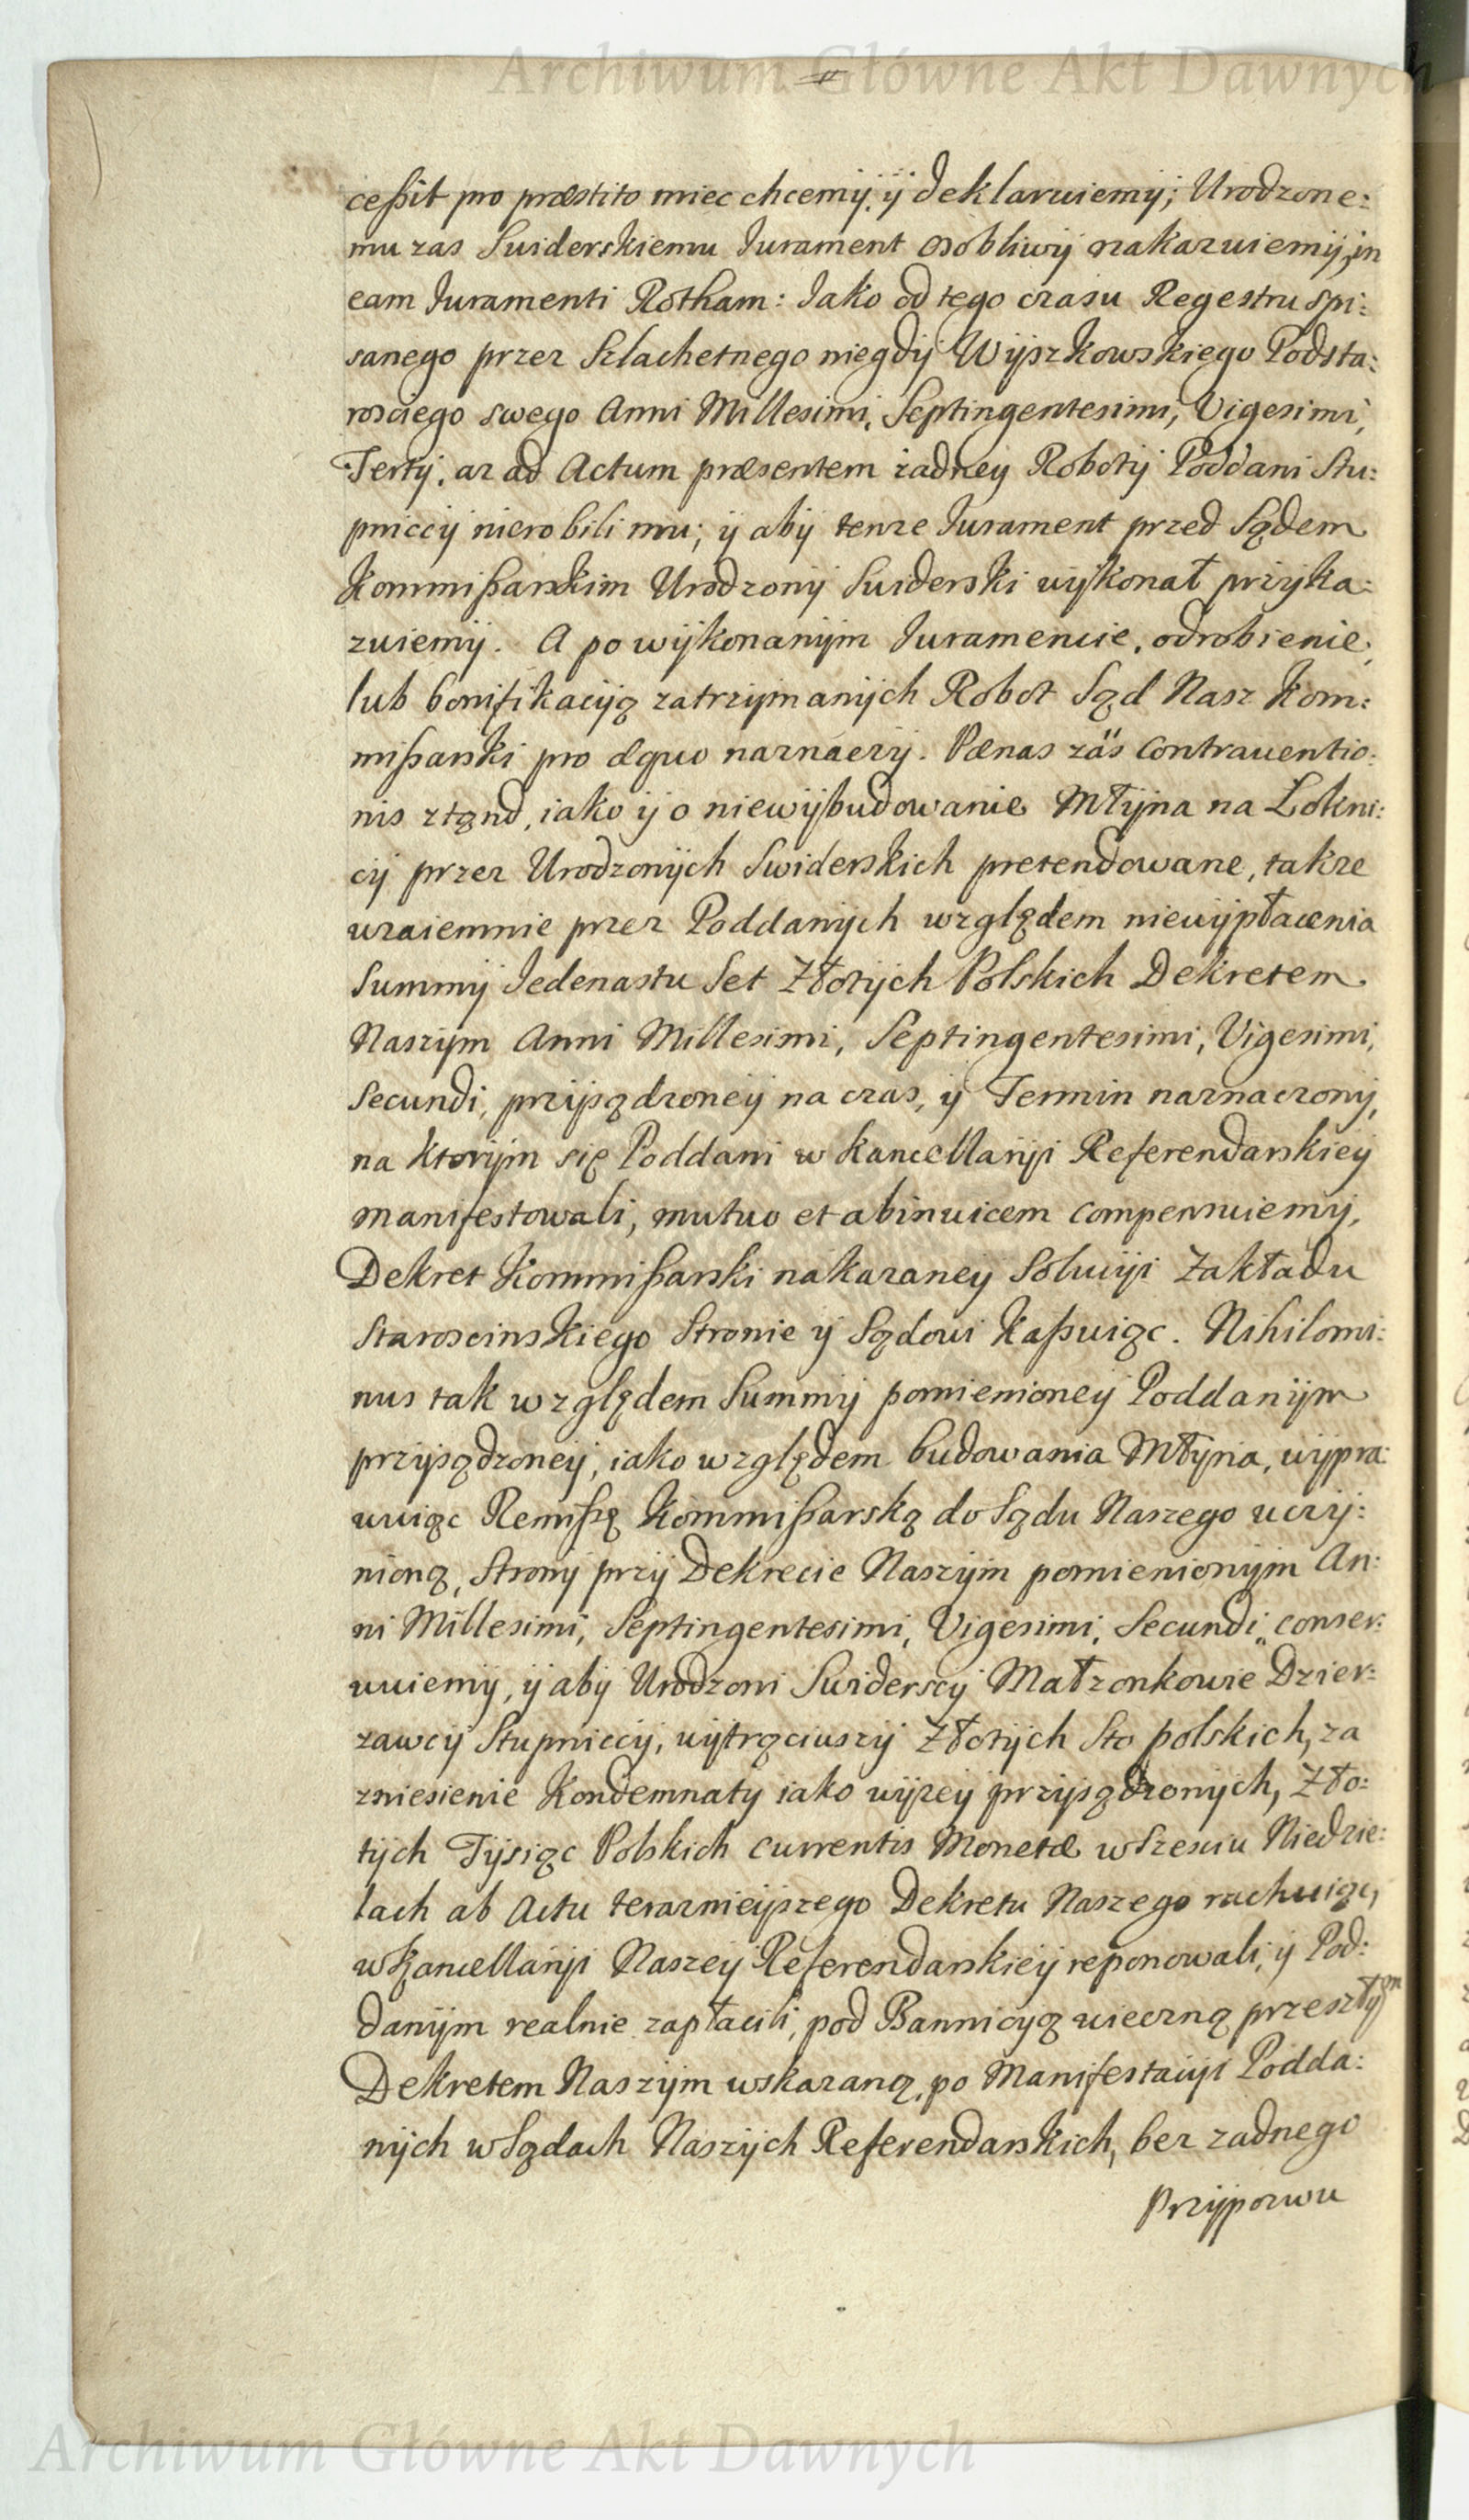 Archiwum Główne Akt Dawnych
ceßit pro præstito miec chcemy, y deklaruiemy; Urodzone:
mu zas Swiderskiemu Jurament osobliwy nakazuiemy, in
eam Juramenti Rotham: Jako od tego czasu Regestru spi:
sanego przez Szlachetnego niegdy Wyszkowskiego Podsta:
rosciego swego Anni Millesimi, Septingentesimi, Vigesimi,
Tertij, az ad Actum præsentem żadney Roboty Poddani Stu:
pniccy nierobili mu; y aby tenze Jurament przed Sądem
Kommißarskim Urodzony Swiderski wykonał przyka:
zuiemy. A po wykonanym Juramencie, odrobienie,
lub bonifikacyą zatrzymanych Robot Sąd Nasz Kom:
mißarski pro æquo naznaczy. Pænas zaś contrauentio:
nis ztąnd, iako y o niewybudowanie Młyna na Łokni:
cy przez Urodzonych Swiderskich pretendowane, takze
wzaiemnie przez Poddanych względem niewypłacenia
Summy Jedenastu Set Złotych Polskich Dekretem
Naszym Anni Millesimi, Septingentesimi, Vigesimi,
Secundi, przysądzoney na czas, y Termin naznaczony,
na ktorym się Poddani w Kancellaryi Referendarskiey
manifestowali, mutuo et abinuicem compensuiemy,
Dekret Kommißarski nakazaney Solucyi Zakładu
Staroscinskiego Stronie y Sądowi Kaßuiąc. Nihilomi:
nus tak względem Summy pomienioney Poddanym
przysądzoney, iako względem budowania Młyna, wypra:
wuiąc Remißę Kommißarską do Sądu Naszego uczy:
nioną, Strony przy Dekrecie Naszym pomienionym An:
ni Millesimi, Septingentesimi, Vigesimi, Secundi, conser:
wuiemy, y aby Urodzoni Swiderscy Małzonkowie Dzier:
zawcy Stupniccy, wytrąciwszy Złotych Sto polskich, za
zniesienie Kondemnaty iako wyzey przysądzonych, Zło:
tych Tysiąc Polskich currentis Monetæ w Szesciu Niedzie:
lach ab Actu teraznieyszego Dekretu Naszego rachuiąc,
w Kancellaryi Naszey Referendarskiey reponowali, y Pod:
danym realnie zapłacili, pod Bannicyą wieczną przeszłym
Dekretem Naszym wskazaną, po Manifestacyi Podda:
nych w Sądach Naszych Referendarskich, bez zadnego
Przypozwu
Archiwum Główne Akt Dawnych